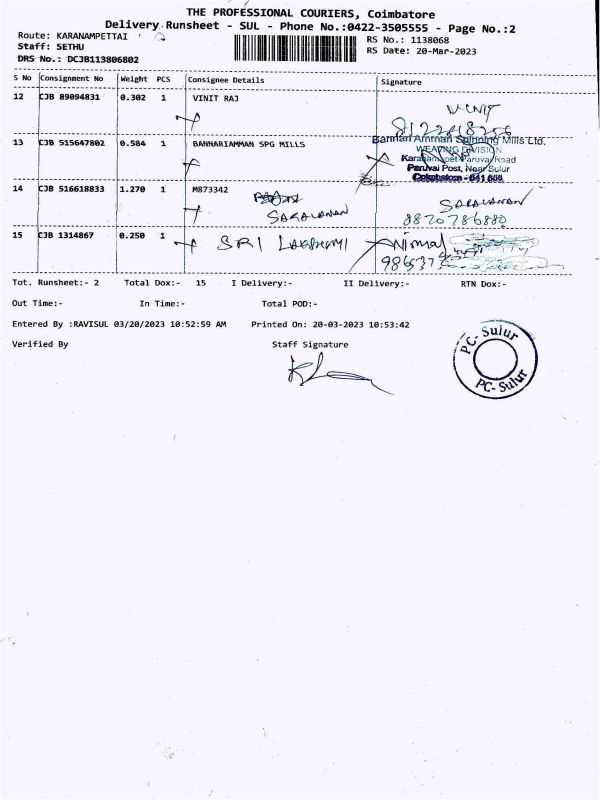 THE PROFESSIONAL COURIERS, Coimbatore
Delivery Runsheet - SUL - Phone No.:0422-3505555 - Page No.:2
Route: KARANAMPETTAI
Staff: SETHU
DRS No.: DCJB113806802
RS No.: 1138068
RS Date: 20-Mar-2023
S No Consignment No Weight PCS Consignee Details Signature
12 CJB 89094831 0.302 1 VINIT RAJ
VINIT
13 CJB 515647802 0.584 1 BANNARIAMMAN SPG MILLS
Bannari Amman Spinning Mills Ltd.
WEAVING DIVISION
Karanampet-Paruvai Road
Paruvai Post, Near Sulur
Coimbatore
14 CJB 516618833 1.270 1 M873342
SARAVANAN SARAVANAN
8870786880
15 CJB 1314867 0.250 1 SRI LAKSHMI Nirmal
Tot. Runsheet:- 2 Total Dox:- 15 I Delivery:- II Delivery:- RTN Dox:-
Out Time:- In Time:- Total POD:-
Entered By :RAVISUL 03/20/2023 10:52:59 AM Printed On: 20-03-2023 10:53:42
Verified By Staff Signature
PC- Sulur
PC- Sulur